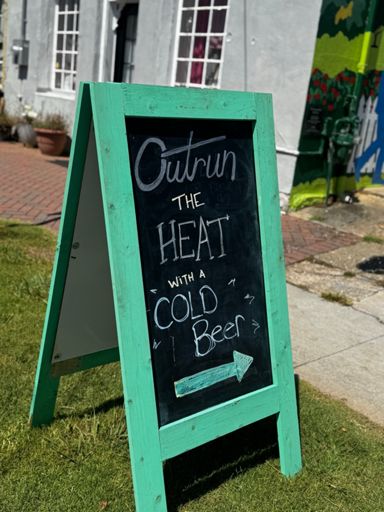 Outrun
THE
HEAT
WITH A
COLD
Beer